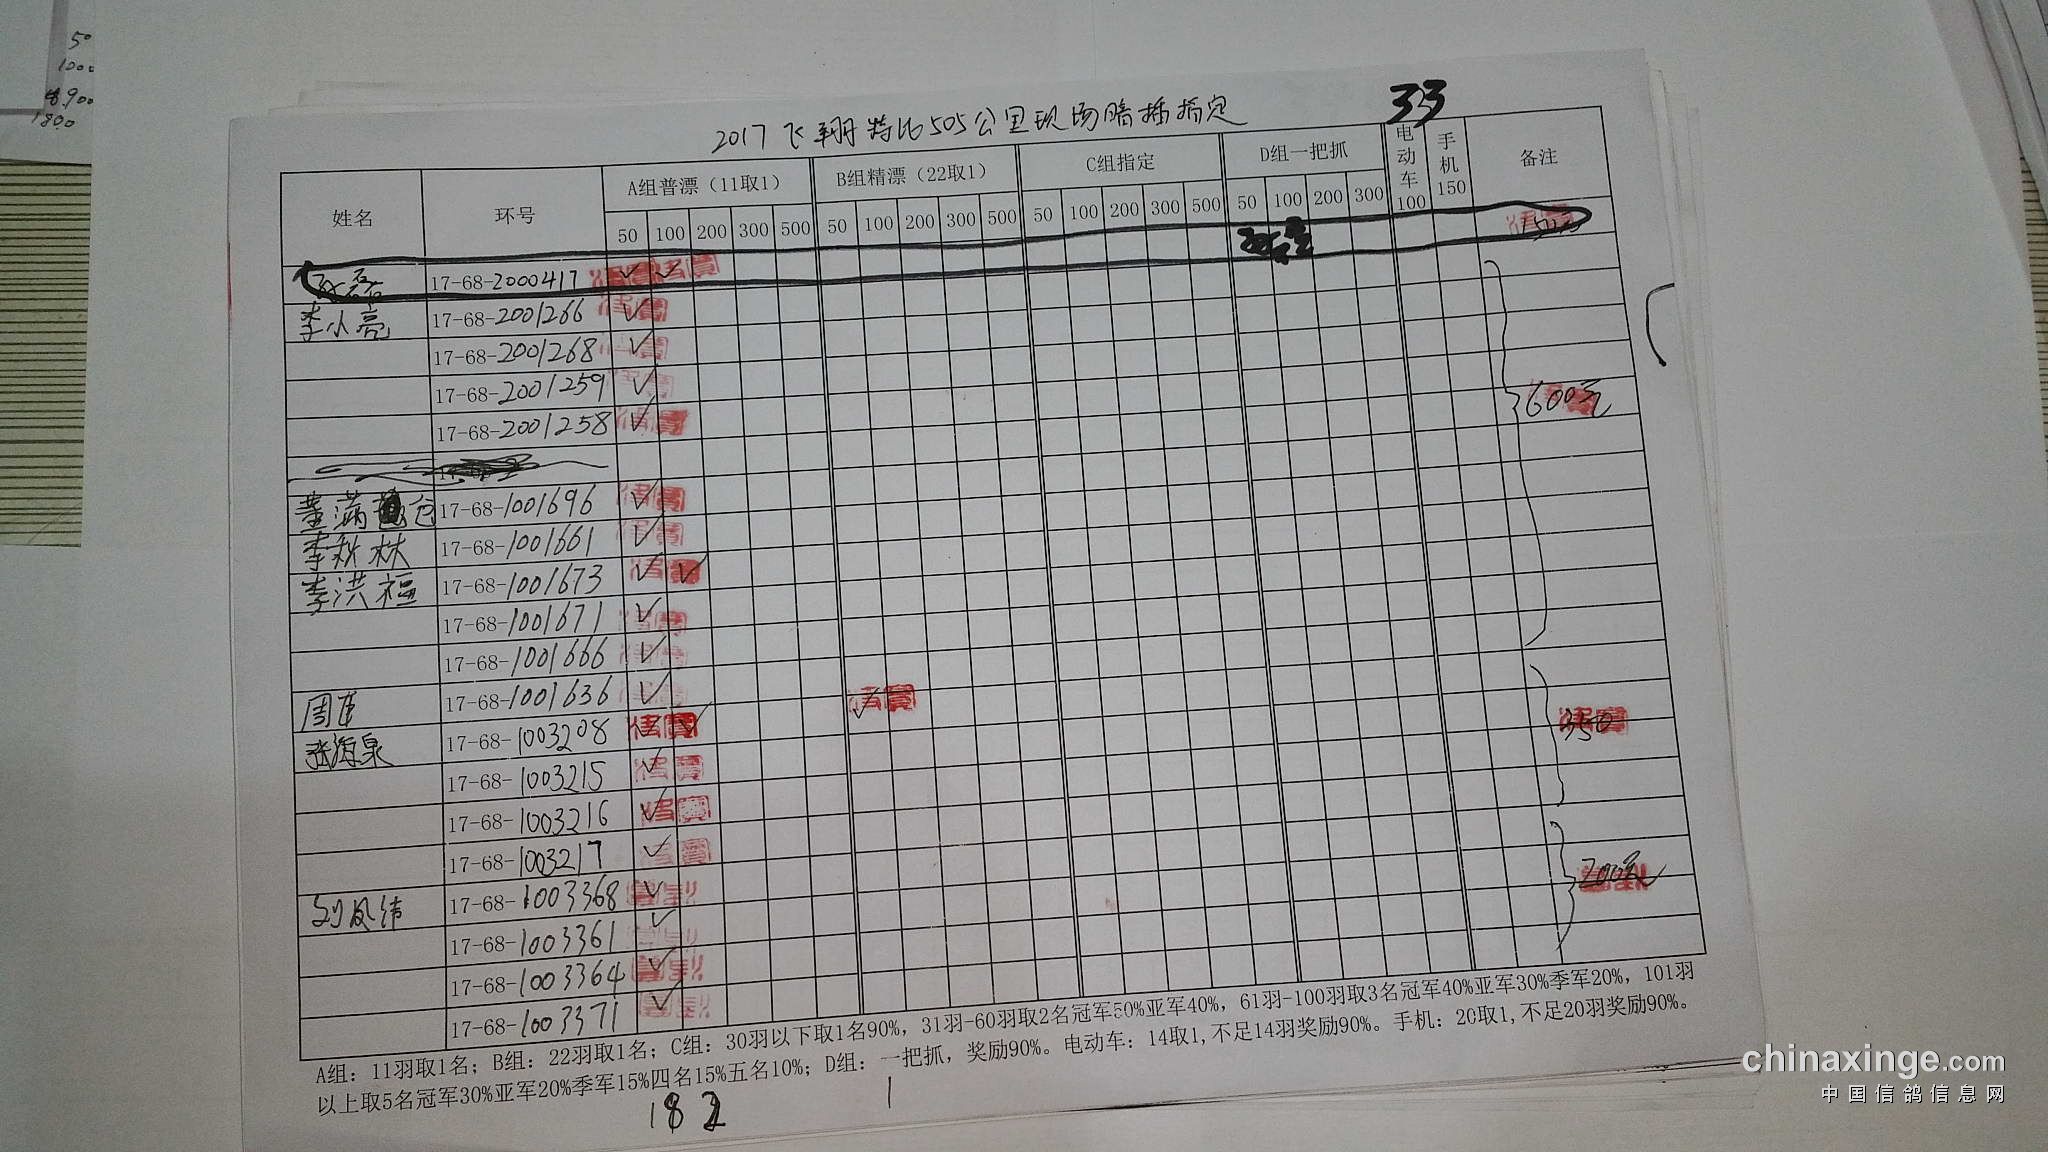 50
1000
8.900
1800
33
2017飞翔特比505公里现场暗插指定
姓名 环号 A组普漂（11取1） B组精漂（22取1） C组指定 D组一把抓 电动车100 手机150 备注
50 100 200 300 500 50 100 200 300 500 50 100 200 300 500 50 100 200 300
17-68-2000417 ✓ ✓
李小亮 17-68-2001266 ✓
17-68-2001268 ✓
17-68-2001259 ✓
17-68-2001258 ✓ 600元
董满仓 17-68-1001696 ✓
李新林 17-68-1001661 ✓
李洪福 17-68-1001673 ✓ ✓
17-68-1001671 ✓
17-68-1001666 ✓
周 17-68-1001636 ✓ ✓
张海泉 17-68-1003208 ✓ ✓ 350
17-68-1003215 ✓
17-68-1003216 ✓
17-68-1003217 ✓
刘凤伟 17-68-1003368 ✓ 200元
17-68-1003361 ✓
17-68-1003364 ✓
17-68-1003371 ✓
A组：11羽取1名；B组：22羽取1名；C组：30羽以下取1名90%，31羽-60羽取2名冠军50%亚军40%，61羽-100羽取3名冠军40%亚军30%季军20%，101羽
以上取5名冠军30%亚军20%季军15%四名15%五名10%；D组：一把抓，奖励90%。电动车：14取1,不足14羽奖励90%。手机：20取1,不足20羽奖励90%。
18 2 1
chinaxinge.com
中国信鸽信息网